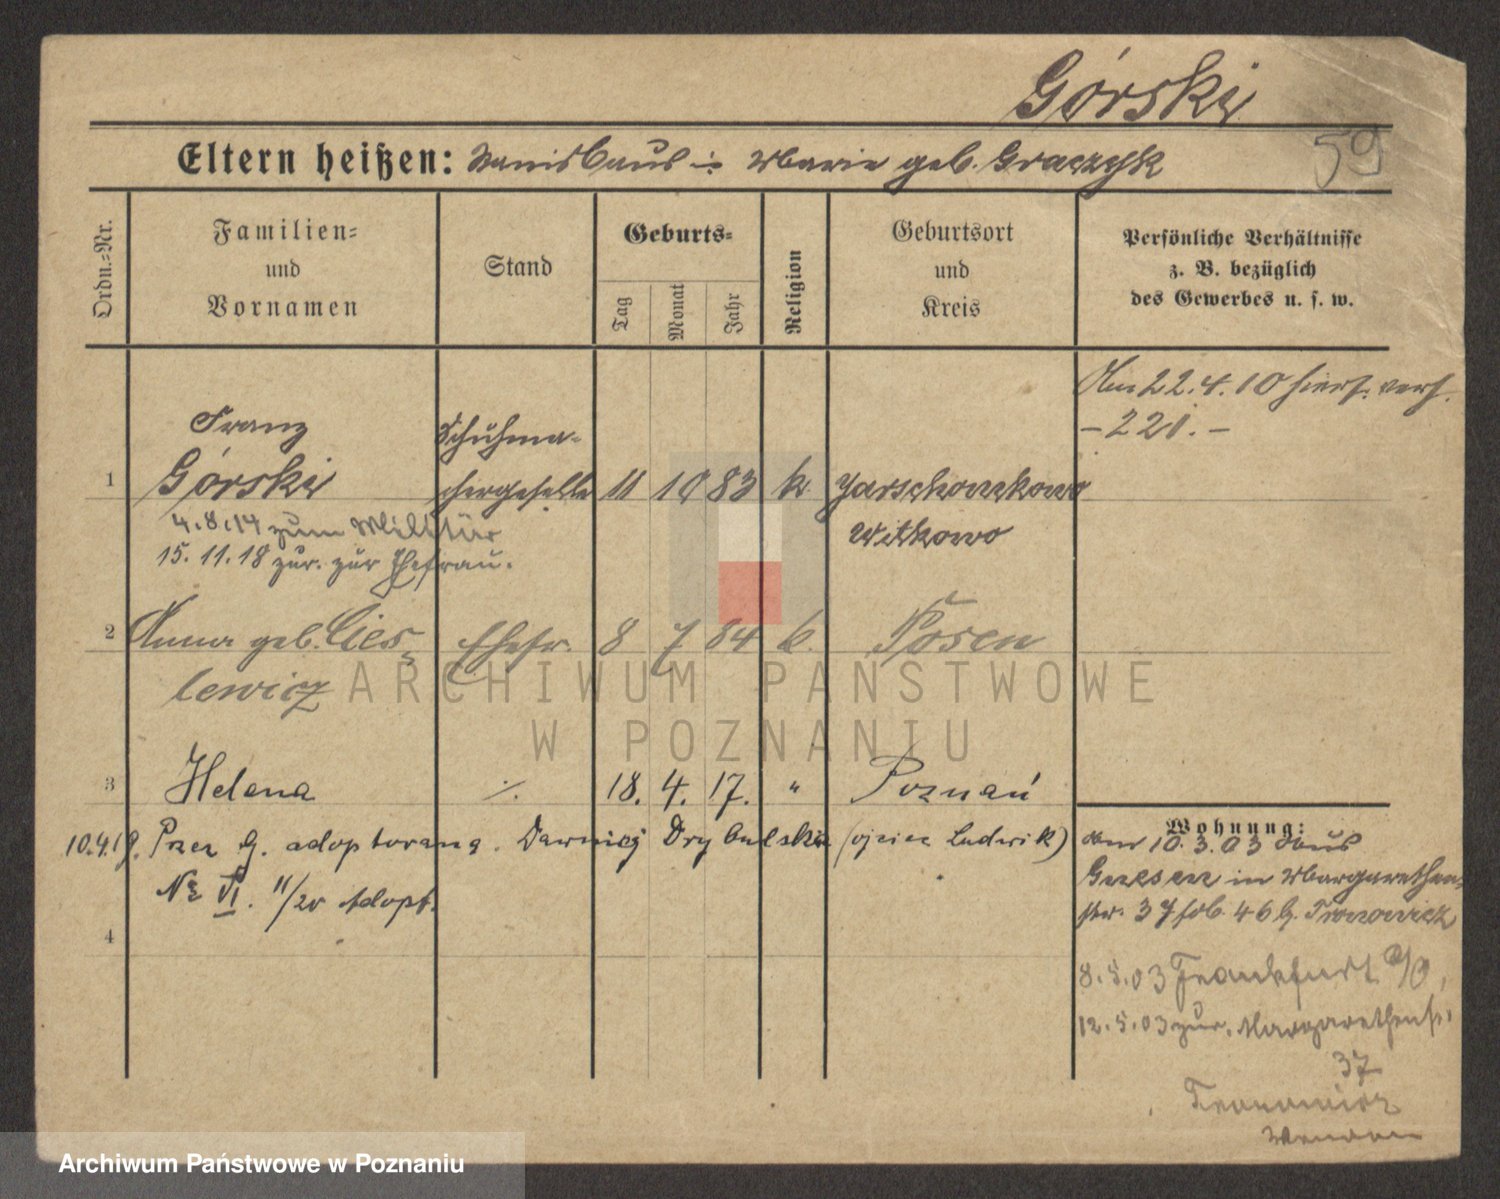 Górski
59
Eltern heißen: Stanislaus u. Marie geb. Graczyk
Ordn.=Nr.
Familien=
und
Vornamen
Stand
Geburts=
Tag
Monat
Jahr
Religion
Geburtsort
und
Kreis
Persönliche Verhältnisse
z. B. bezüglich
des Gewerbes u. s. w.
Am 22.4.10 hiers. verh.
- 221. -
1
Franz
Górski
Schuhma-
chergeselle
11 10 83 k.
Jarschomkowo
Witkowo
4.8.14 zum Militär
15.11.18 zur. zur Ehefrau.
2
Anna geb. Cies-
lewicz
Ehefr. 8 7 84 k. Posen
3
Helena ./. 18. 4. 17. " Poznań
10.4.19. Przez G. adoptowana. Dawniej Drybulska (ojciec Ludwik)
No VI. 11/20 Adopt.
4
Wohnung:
Am 10.3.03 aus
Gnesen in Margarethen-
str. 37 b.
8.5.03 Frankfurt a/O,
12.5.03 zur. Margarethenstr.
37
ARCHIWUM PAŃSTWOWE
W POZNANIU
Archiwum Państwowe w Poznaniu